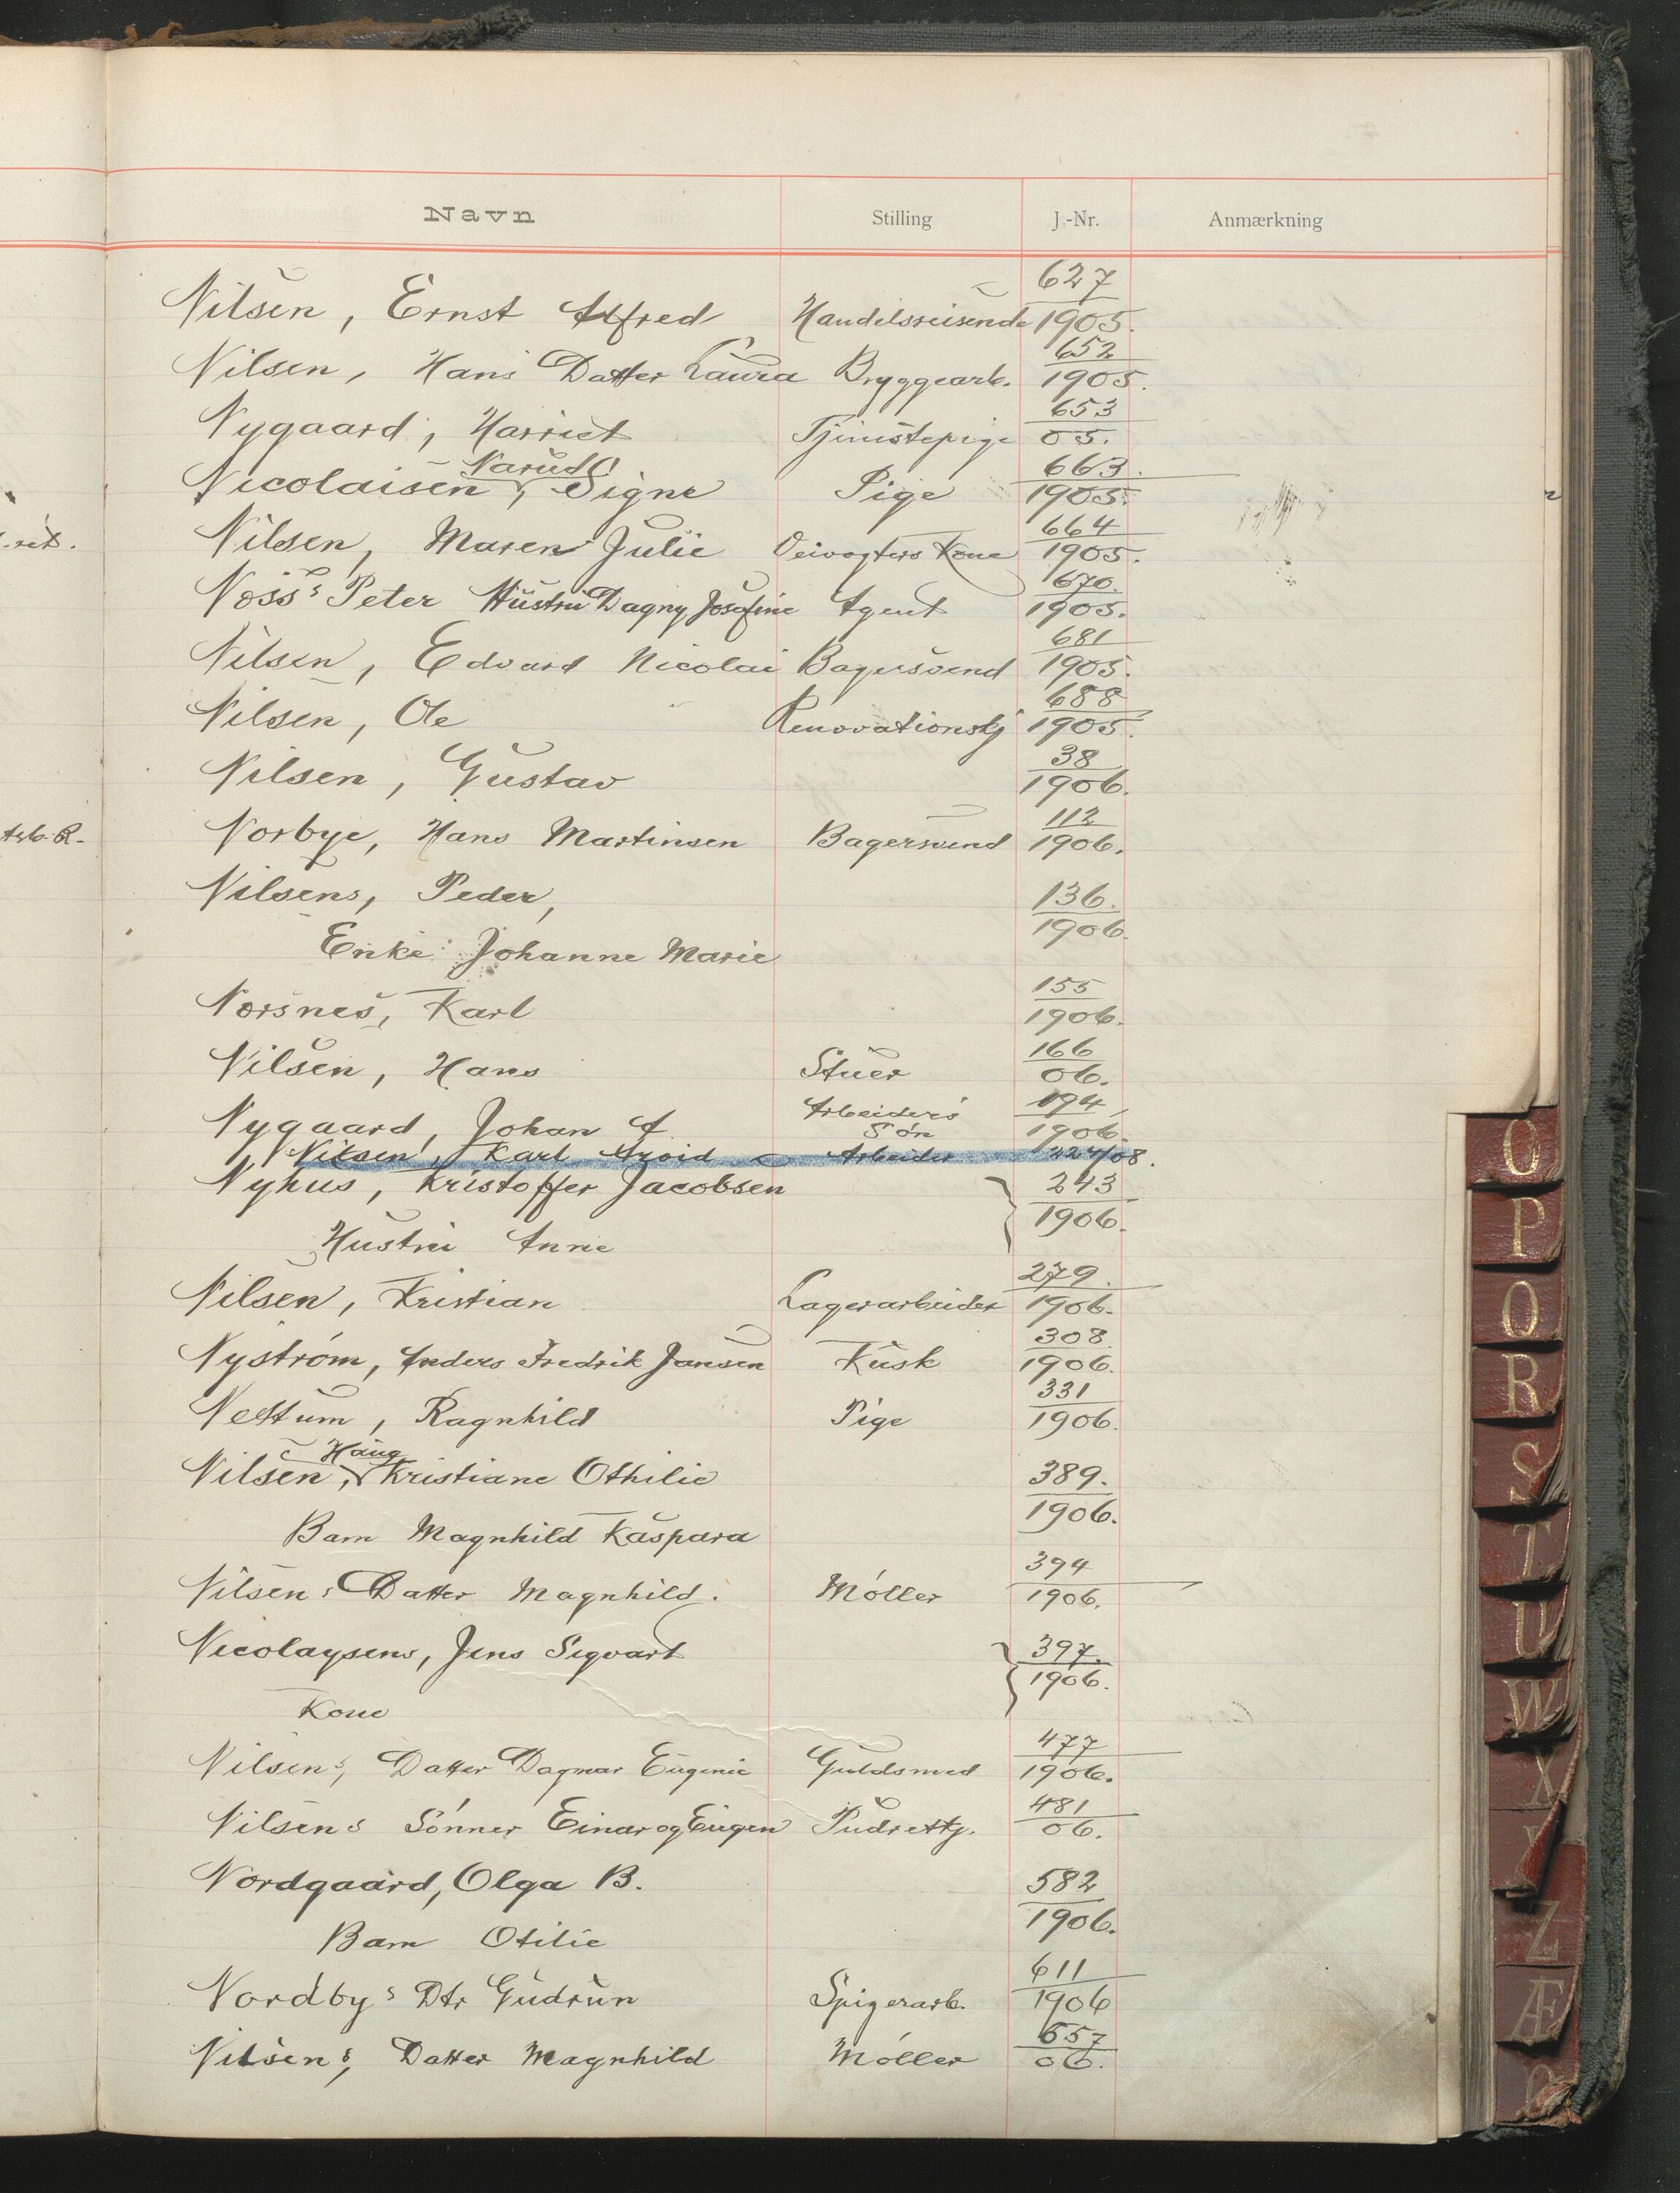 Navn Stilling J.-Nr. Anmærkning
Nilsen, Ernst Alfred Handelsreisende 627/1905.
Nilsen, Hans Datter Laura Bryggearb. 652/1905.
Nygaard, Harriet Tjenestepige 653/05.
Narud
Nicolaisen, Signe Pige 663/1905.
Nilsen, Maren Julie Veivogters Kone 664/1905.
Noss's Peter Hustru Dagny Josefine Agent 670/1905.
Nilsen, Edvard Nicolai Bagersvend 681/1905.
Nilsen, Ole Renovationskj 688/1905.
Nilsen, Gustav 38/1906.
Arb. R. Norbye, Hans Martinsen Bagersvend 112/1906.
Nilsens, Peder, 136/1906.
Enke Johanne Marie
Norsnes, Karl 155/1906.
Nilsen, Hans Stuer 166/06.
Nygaard, Johan A. Arbeiders Søn 194/1906.
Nilsen, Karl Arvid Arbeider 224/08.
Nyhus, Kristoffer Jacobsen 243/1906.
Hustru Anne
Nilsen, Kristian Lagerarbeider 279/1906.
Nystrøm, Anders Fredrik Jansen Kusk 308/1906.
Nettum, Ragnhild Pige 331/1906.
Haug
Nilsen, Kristiane Othilie 389/1906.
Barn Magnhild Kaspara
Nilsens Datter Magnhild. Møller 394/1906.
Nicolaysens, Jens Sigvart 397/1906.
Kone
Nilsens, Datter Dagmar Eugenie Guldsmed 477/1906.
Nilsens Sønner Einar og Eugen Pudretkj. 481/06.
Nordgaard, Olga B. 582/1906.
Barn Otilie
Nordby's Dtr Gudrun Spigerarb. 611/1906
Nilsens, Datter Magnhild Møller 657/06.
O
P
Q
R
S
T
U
W
X
Y
Z
Æ
Ø